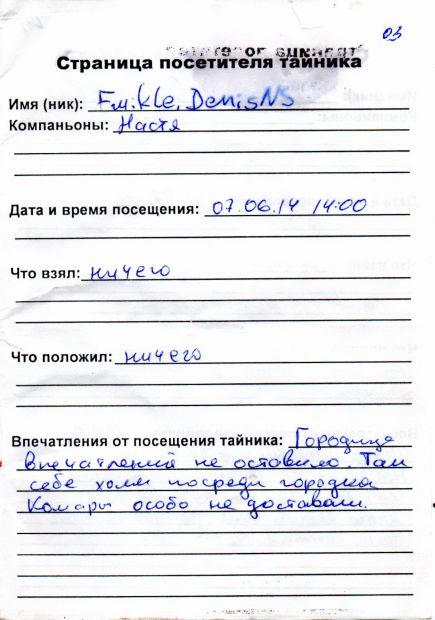 03
Страница посетителя тайника
Имя (ник): Fw.kle, DenisNS
Компаньоны: Настя
Дата и время посещения: 07.06.14 14:00
Что взял: ничего
Что положил: ничего
Впечатления от посещения тайника: Городище
впечатлений не оставило. Так
себе холм посреди городка
Комары особо не доставали.